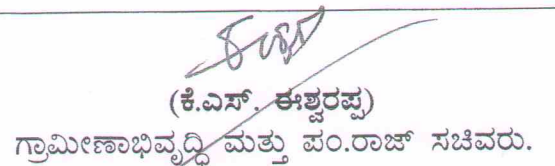 (ಕೆ.ಎಸ್. ಈಶ್ವರಪ್ಪ)
ಗ್ರಾಮೀಣಾಭಿವೃದ್ಧಿ ಮತ್ತು ಪಂ.ರಾಜ್ ಸಚಿವರು.